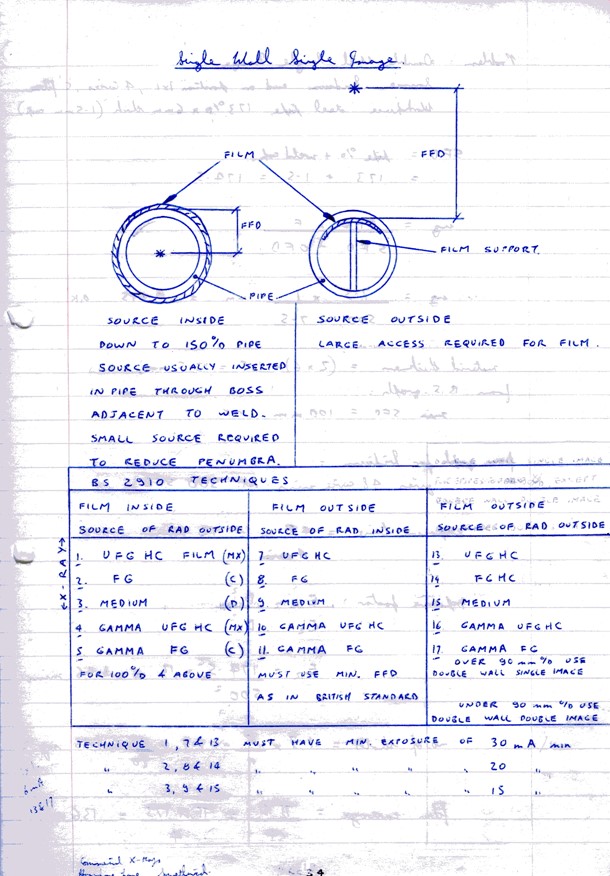 Single Wall Single Image.
FILM
FFD
FFD
FILM SUPPORT.
PIPE
SOURCE INSIDE
DOWN TO 150 %D PIPE
SOURCE USUALLY INSERTED
IN PIPE THROUGH BOSS
ADJACENT TO WELD.
SMALL SOURCE REQUIRED
TO REDUCE PENUMBRA.
SOURCE OUTSIDE
LARGE ACCESS REQUIRED FOR FILM.
BS 2910 TECHNIQUES
FILM INSIDE
SOURCE OF RAD OUTSIDE
←X-RAY→
1. UFG HC FILM (MX)
2. FG (C)
3. MEDIUM (D)
4 GAMMA UFG HC (MX)
5 GAMMA FG (C)
FOR 100 %D & ABOVE
FILM OUTSIDE
SOURCE OF RAD. INSIDE
7 UFG HC
8. FG
9 MEDIUM
10 GAMMA UFG HC
11. GAMMA FG
MUST USE MIN. FFD
AS IN BRITISH STANDARD
FILM OUTSIDE
SOURCE OF RAD OUTSIDE
13. UFG HC
14 FG HC
15 MEDIUM
16 GAMMA UFG HC
17. GAMMA FG
OVER 90 mm %D USE
DOUBLE WALL SINGLE IMAGE
UNDER 90 mm %D USE
DOUBLE WALL DOUBLE IMAGE
TECHNIQUE 1, 7 & 13 MUST HAVE MIN. EXPOSURE OF 30 mA/min
" 2, 8 & 14 " " " " 20 "
" 3, 9 & 15 " " " " 15 "
6 mA
13 & 17
Commercial X-Rays
34